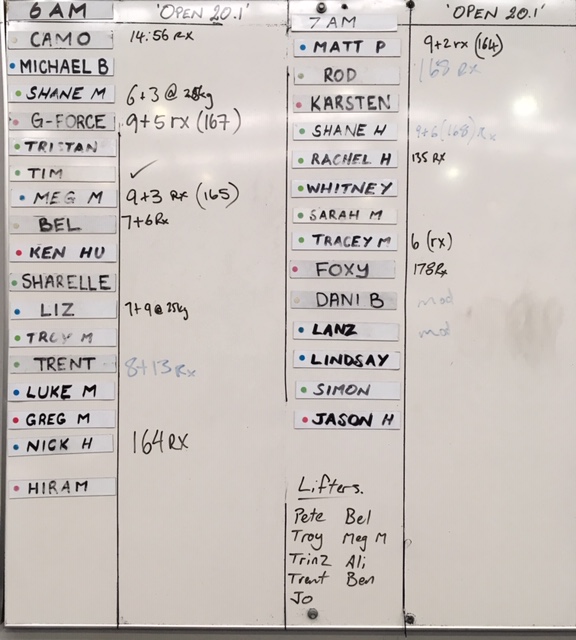 6 AM 'OPEN 20.1'
CAMO 14:56 RX
MICHAEL B
SHANE M 6+3 @ 25kg
G-FORCE 9+5 rx (167)
TRISTAN
TIM ✓
MEG M 9+3 RX (165)
BEL 7+6 Rx
KEN HU
SHARELLE
LIZ 7+9 @ 25kg
TROY M
TRENT 8+13 Rx
LUKE M
GREG M
NICK H 164 RX
HIRAM
7 AM 'OPEN 20.1'
MATT P 9+2 rx (164)
ROD 168 RX
KARSTEN
SHANE H 9+6 (168) Rx
RACHEL H 135 RX
WHITNEY
SARAH M
TRACEY M 6 (rx)
FOXY 178 Rx
DANI B mod
LANZ mod
LINDSAY
SIMON
JASON H
Lifters.
Pete Bel
Troy Meg M
Trinz Ali
Trent Ben
Jo